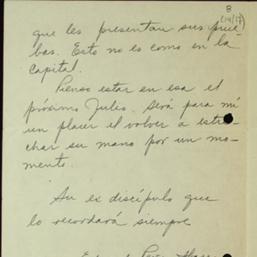 8
(14/17)
que les presentan sus prue
bas. Esto no es como en la
capital.
Pienso estar en esa el
próximo Julio. Será para mí
un placer el volver a estre
char su mano por un mo-
mento.
Su ex discípulo que
lo recordará siempre